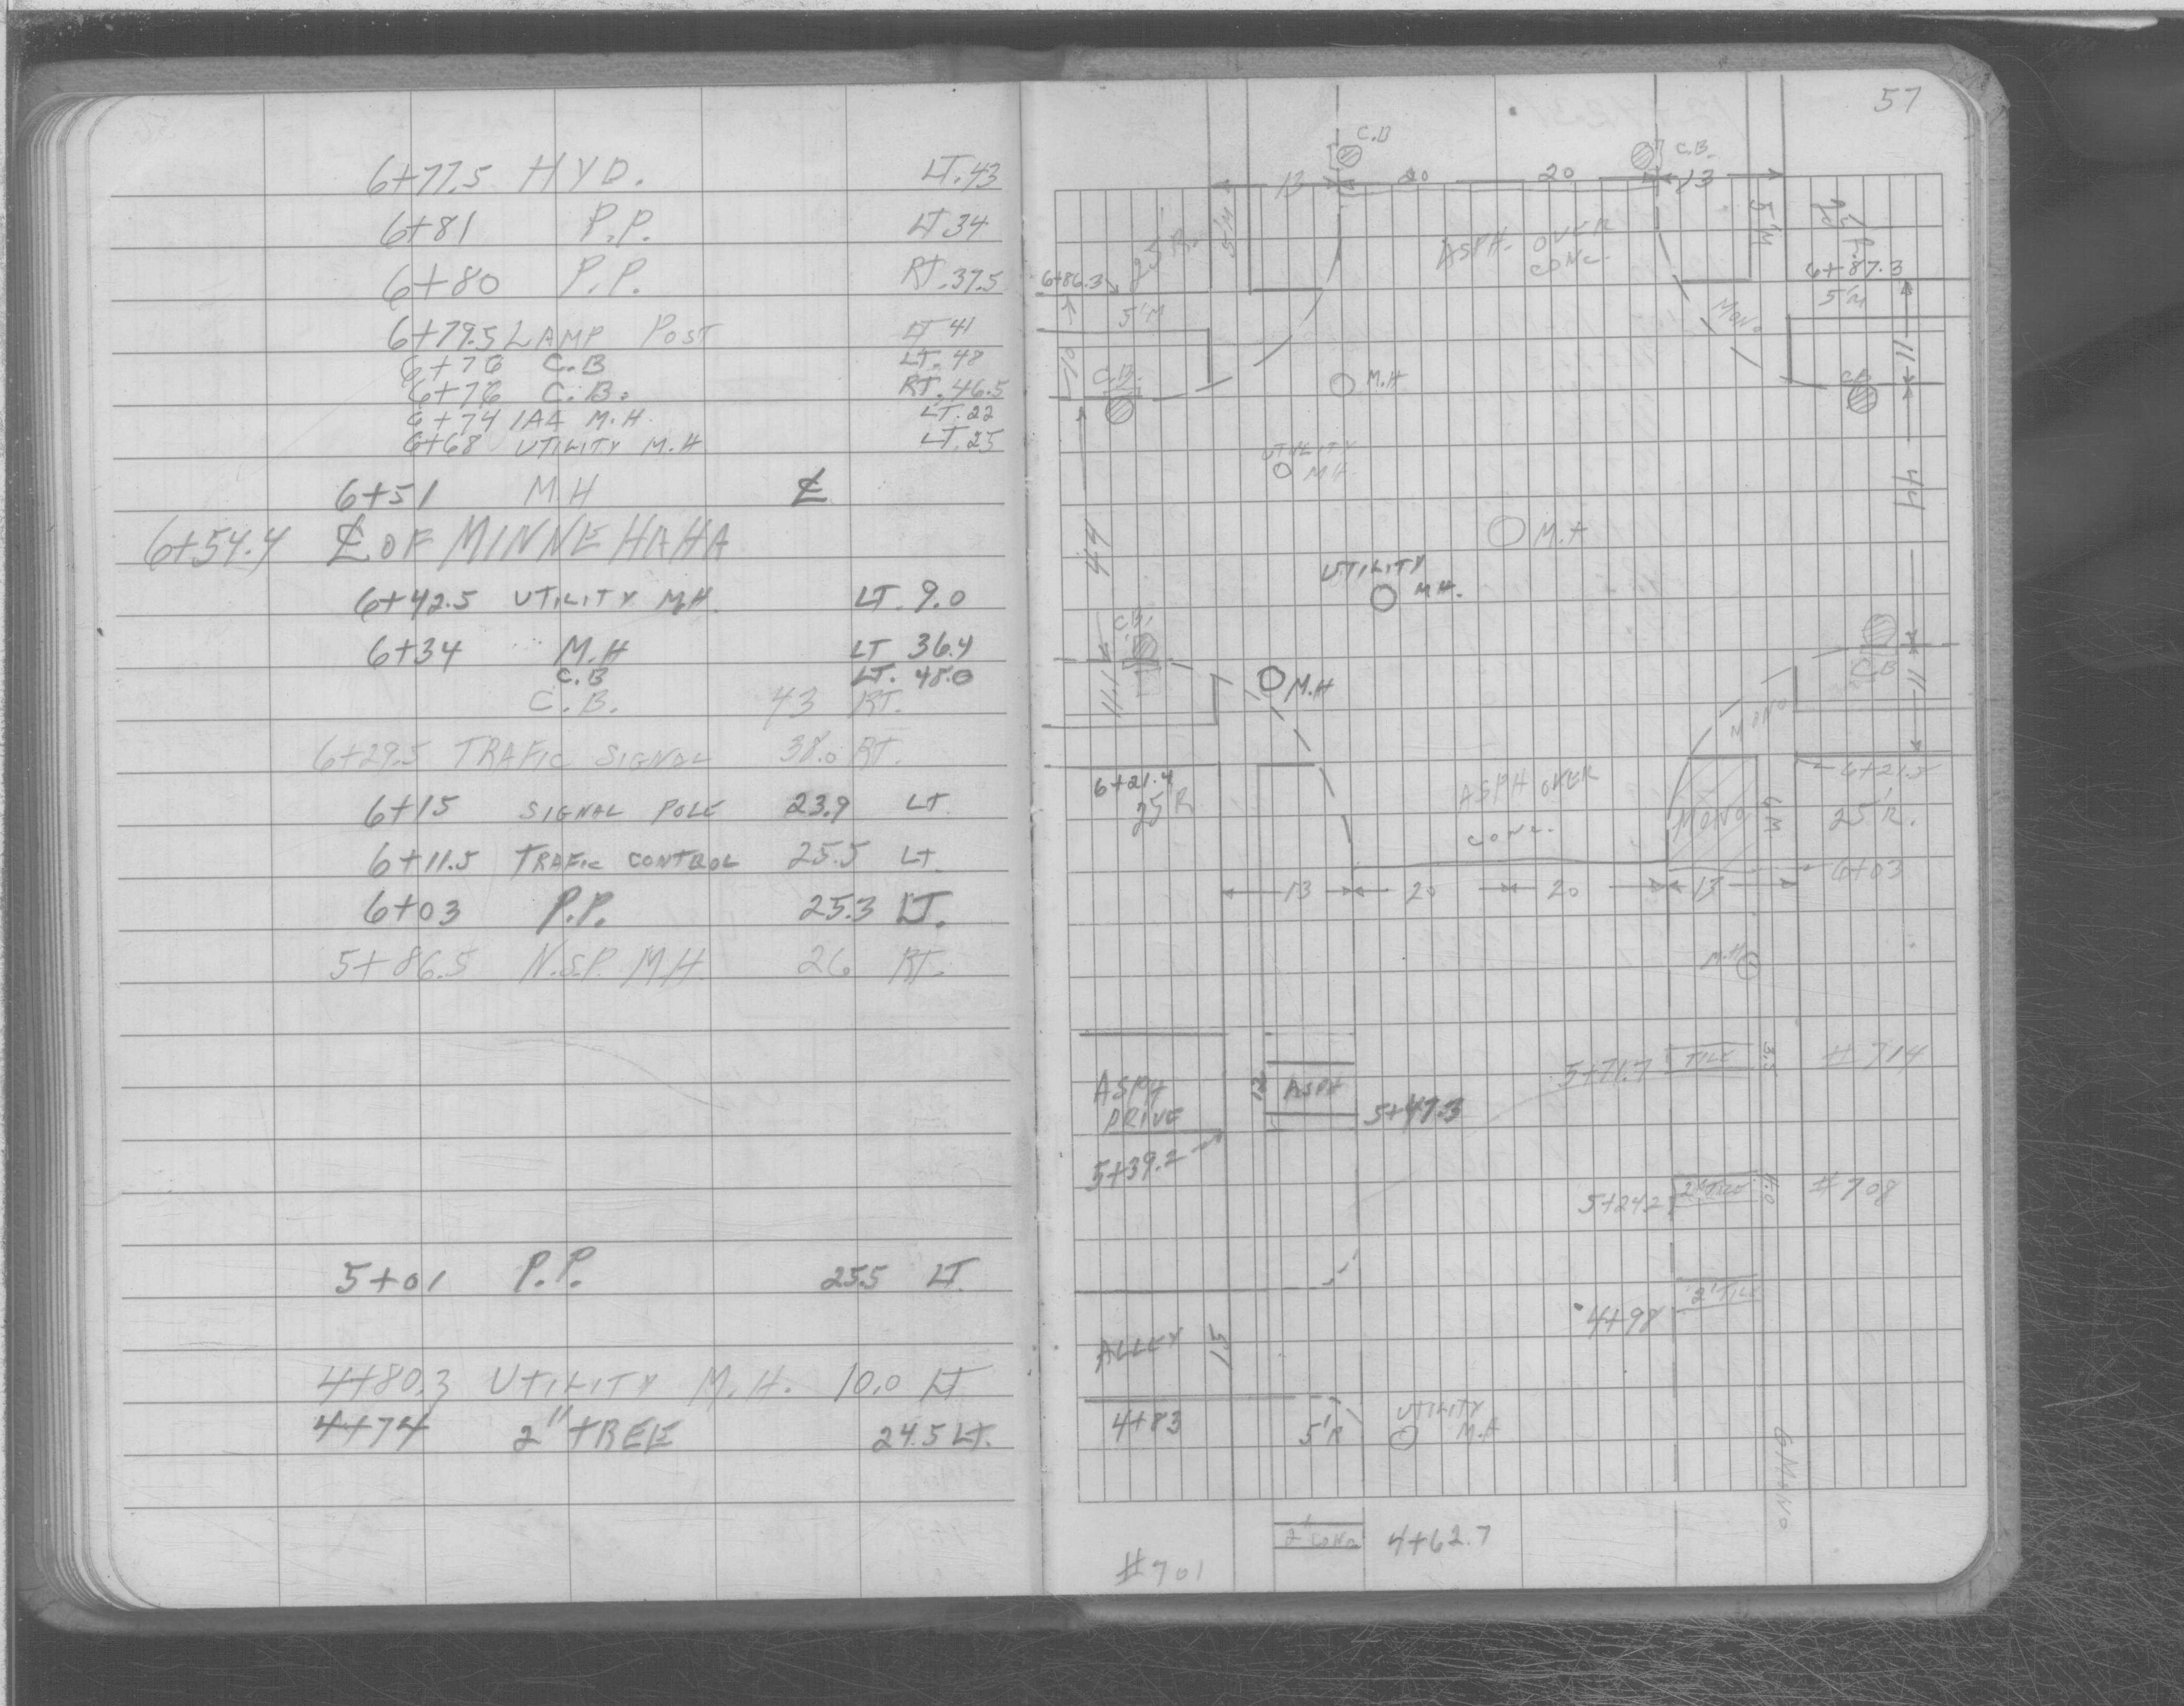 6+77.5 HYD. LT. 43
6+81 P.P. LT 34
6+80 P.P. RT. 37.5
6+79.5 LAMP POST LT 41
6+76 C.B LT. 48
6+76 C.B. RT. 46.5
6+74 M.H. LT. 22
6+68 UTILITY M.H. LT. 25
6+51 M.H ℄
6+54.4 ℄ OF MINNEHAHA
6+42.5 UTILITY M.H. LT. 9.0
6+34 M.H LT 36.4
C.B LT. 48.0
C.B. 43 RT.
6+29.5 TRAFIC SIGNAL 38.0 RT.
6+15 SIGNAL POLE 23.9 LT.
6+11.5 TRAFIC CONTROL 25.5 LT.
6+03 P.P. 25.3 LT.
5+86.5 N.S.P. M.H. 26 RT.
5+01 P.P. 25.5 LT.
4+80.3 UTILITY M.H. 10.0 LT
4+74 2" TREE 24.5 LT.
57
C.B C.B.
13 20 20 13
25 R. 5'M ASPH. OVER 5'M 25'R.
CONC.
6+86.3 6+87.3
5'M MONO 5'M
10 11
C.B. M.H C.B.
UTILITY
M.H.
44 44
M.H
UTILITY
M.H.
C.B.
M.H C.B
11.1 11
MONO
6+21.4 ASPH OVER 6+21.5
25'R CONC. MONO 6M 25'R.
6+03
13 20 20 13
M.H
5+71.7 TILE 3.5 #714
ASPH 12 ASPH
DRIVE 5+47.3
5+39.2
5+24.2 2" TILE 4.0 #708
4+98 2' TILE
ALLEY 15
4+83 5'R UTILITY
M.H
6 MONO
2' CONC 4+62.7
#701